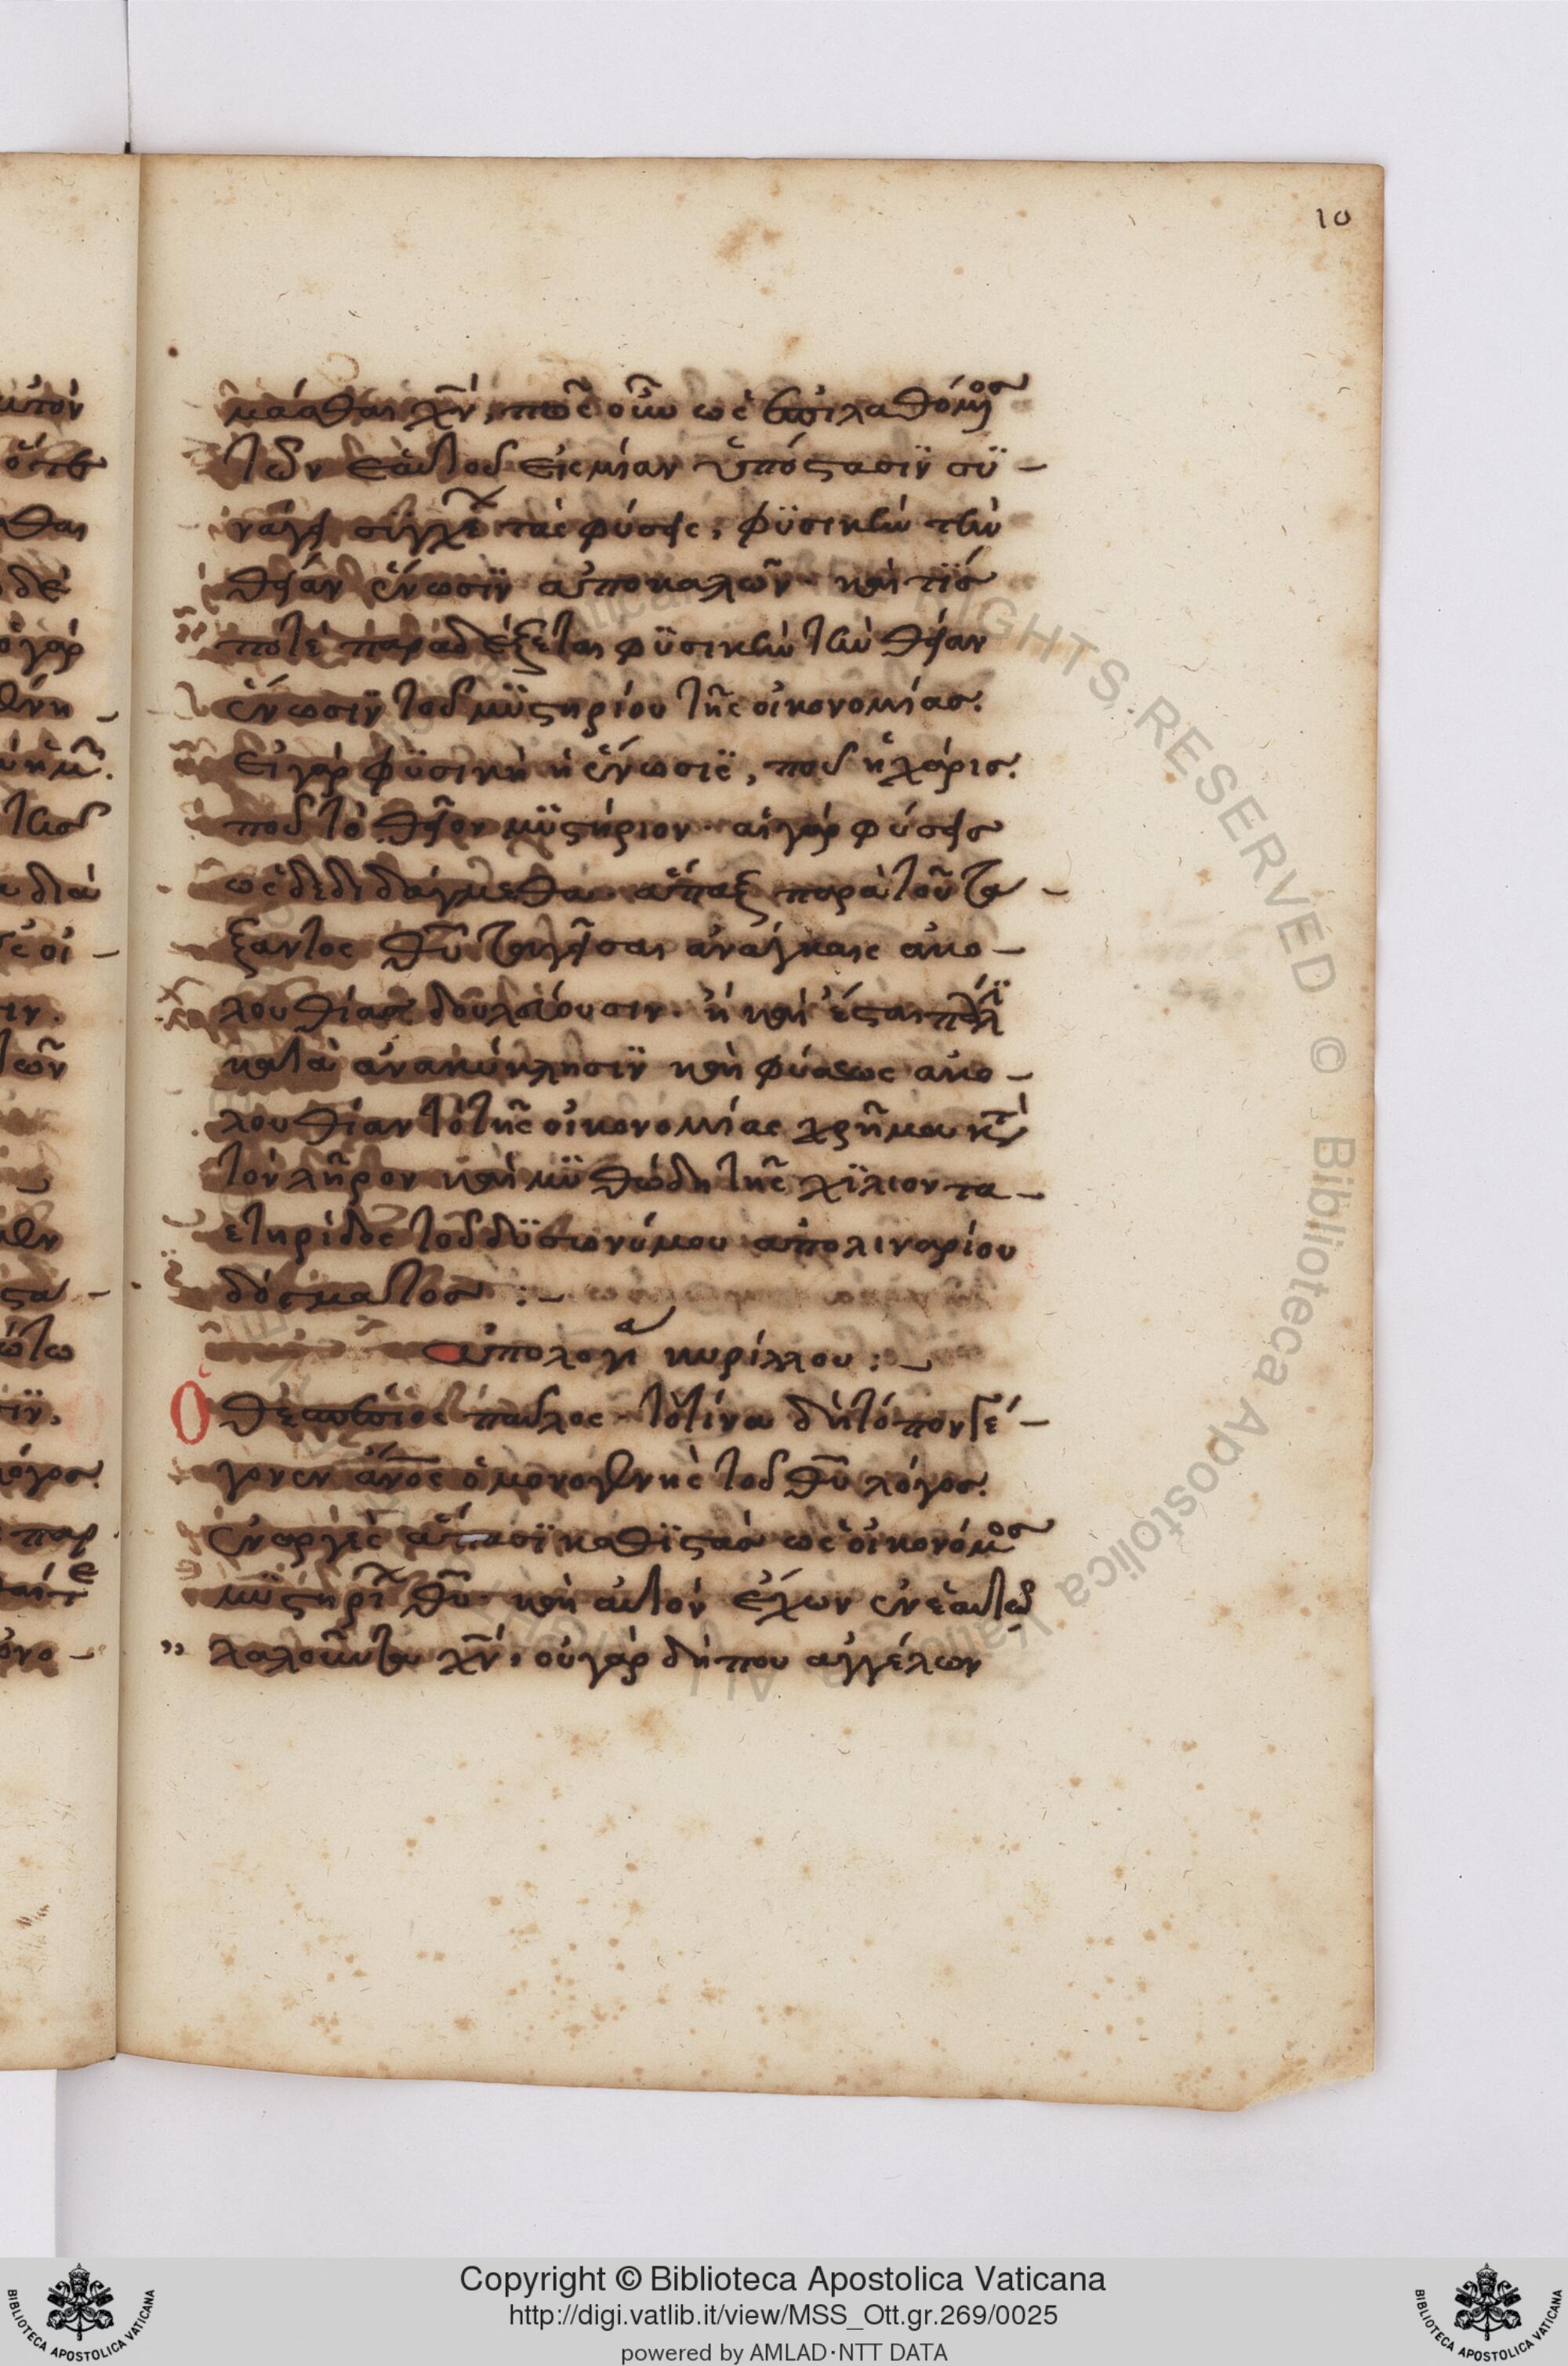 10
μάσθαι χν̅, πῶς οὖν ὡς ἐπιλαθόμενος
τῶν ἑαυτοῦ εἰς μίαν ὑπόστασιν συ-
νάγει συγχέ τὰς φύσεις, φυσικὴν τὴν
θείαν ἕνωσιν ἀποκαλῶν· καὶ τίς
ποτὲ παραδέξεται φυσικὴν τὴν θείαν
ἕνωσιν τοῦ μυστηρίου τῆς οἰκονομίας.
Εἰ γὰρ φυσικὴ ἡ ἕνωσις, ποῦ ἡ χάρις.
ποῦ τὸ θεῖον μυστήριον· αἱ γὰρ φύσεις
ὡς δεδιδάγμεθα ἅπαξ παρὰ τοῦ τά-
ξαντος θυ̅ ταγεῖσαι ἀνάγκαις ἀκο-
λουθίας δουλεύουσιν· ἢ καὶ ἔσται πάλι
κατὰ ἀνακύκλησιν καὶ φύσεως ἀκο-
λουθίαν τὸ τῆς οἰκονομίας χρῆμα κατὰ
τὸν λῆρον καὶ μυθώδη τῆς χιλιοντα-
ετηρίδος τοῦ δυσωνύμου ἀπολιναρίου
δόγματος :-
ἀπολογία κυρίλλου :-
Ὁ θεσπέσιος παῦλος τὸ τίνα δὴ τόπον γέ-
γονεν ἄνος ὁ μονογενὴς τοῦ θυ̅ λόγος.
ἐναργὲς ἅπασι καθιστὰς ὡς οἰκονόμος
μυστηρί θυ̅· καὶ αὐτὸν ἔχων ἐν ἑαυτῷ
” λαλοῦντα χν̅, οὐ γὰρ δήπου ἀγγέλων
RIGHTS RESERVED © Biblioteca Apostolica Vaticana
Copyright © Biblioteca Apostolica Vaticana
http://digi.vatlib.it/view/MSS_Ott.gr.269/0025
powered by AMLAD·NTT DATA
BIBLIOTECA APOSTOLICA VATICANA
BIBLIOTECA APOSTOLICA VATICANA